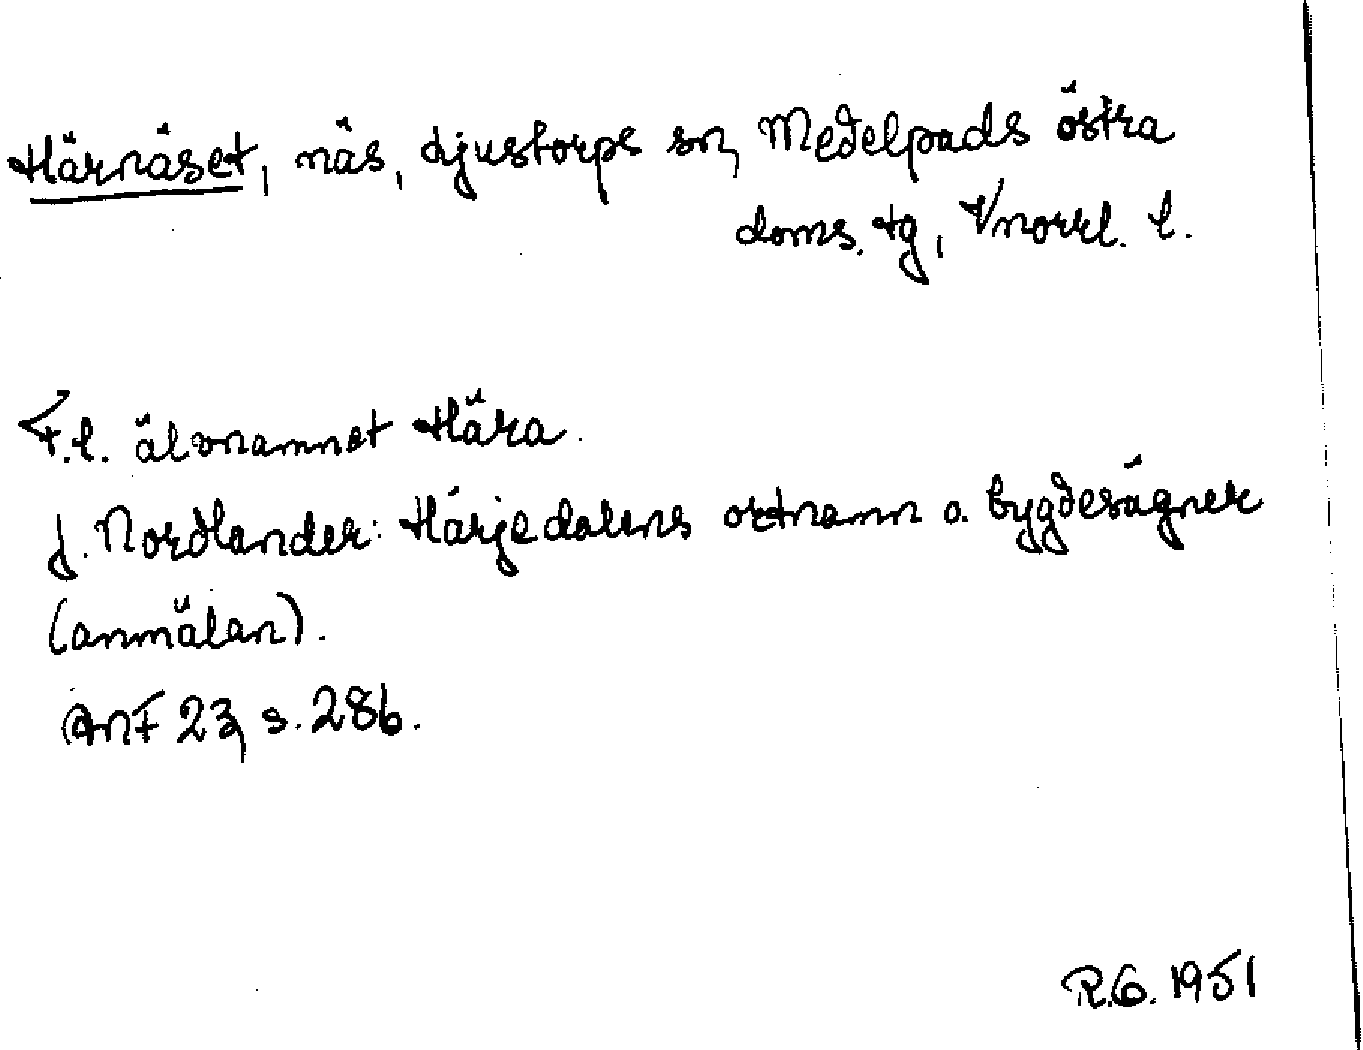 Härnäset, näs, Ljustorps sn, Medelpads östra
doms. tg, Vnorrl. l.
F.l. älvnamnet Hära.
J. Nordlander: Härjedalens ortnamn o. bygdesägner
(anmälan).
ANF 23, s. 286.
R.G. 1951